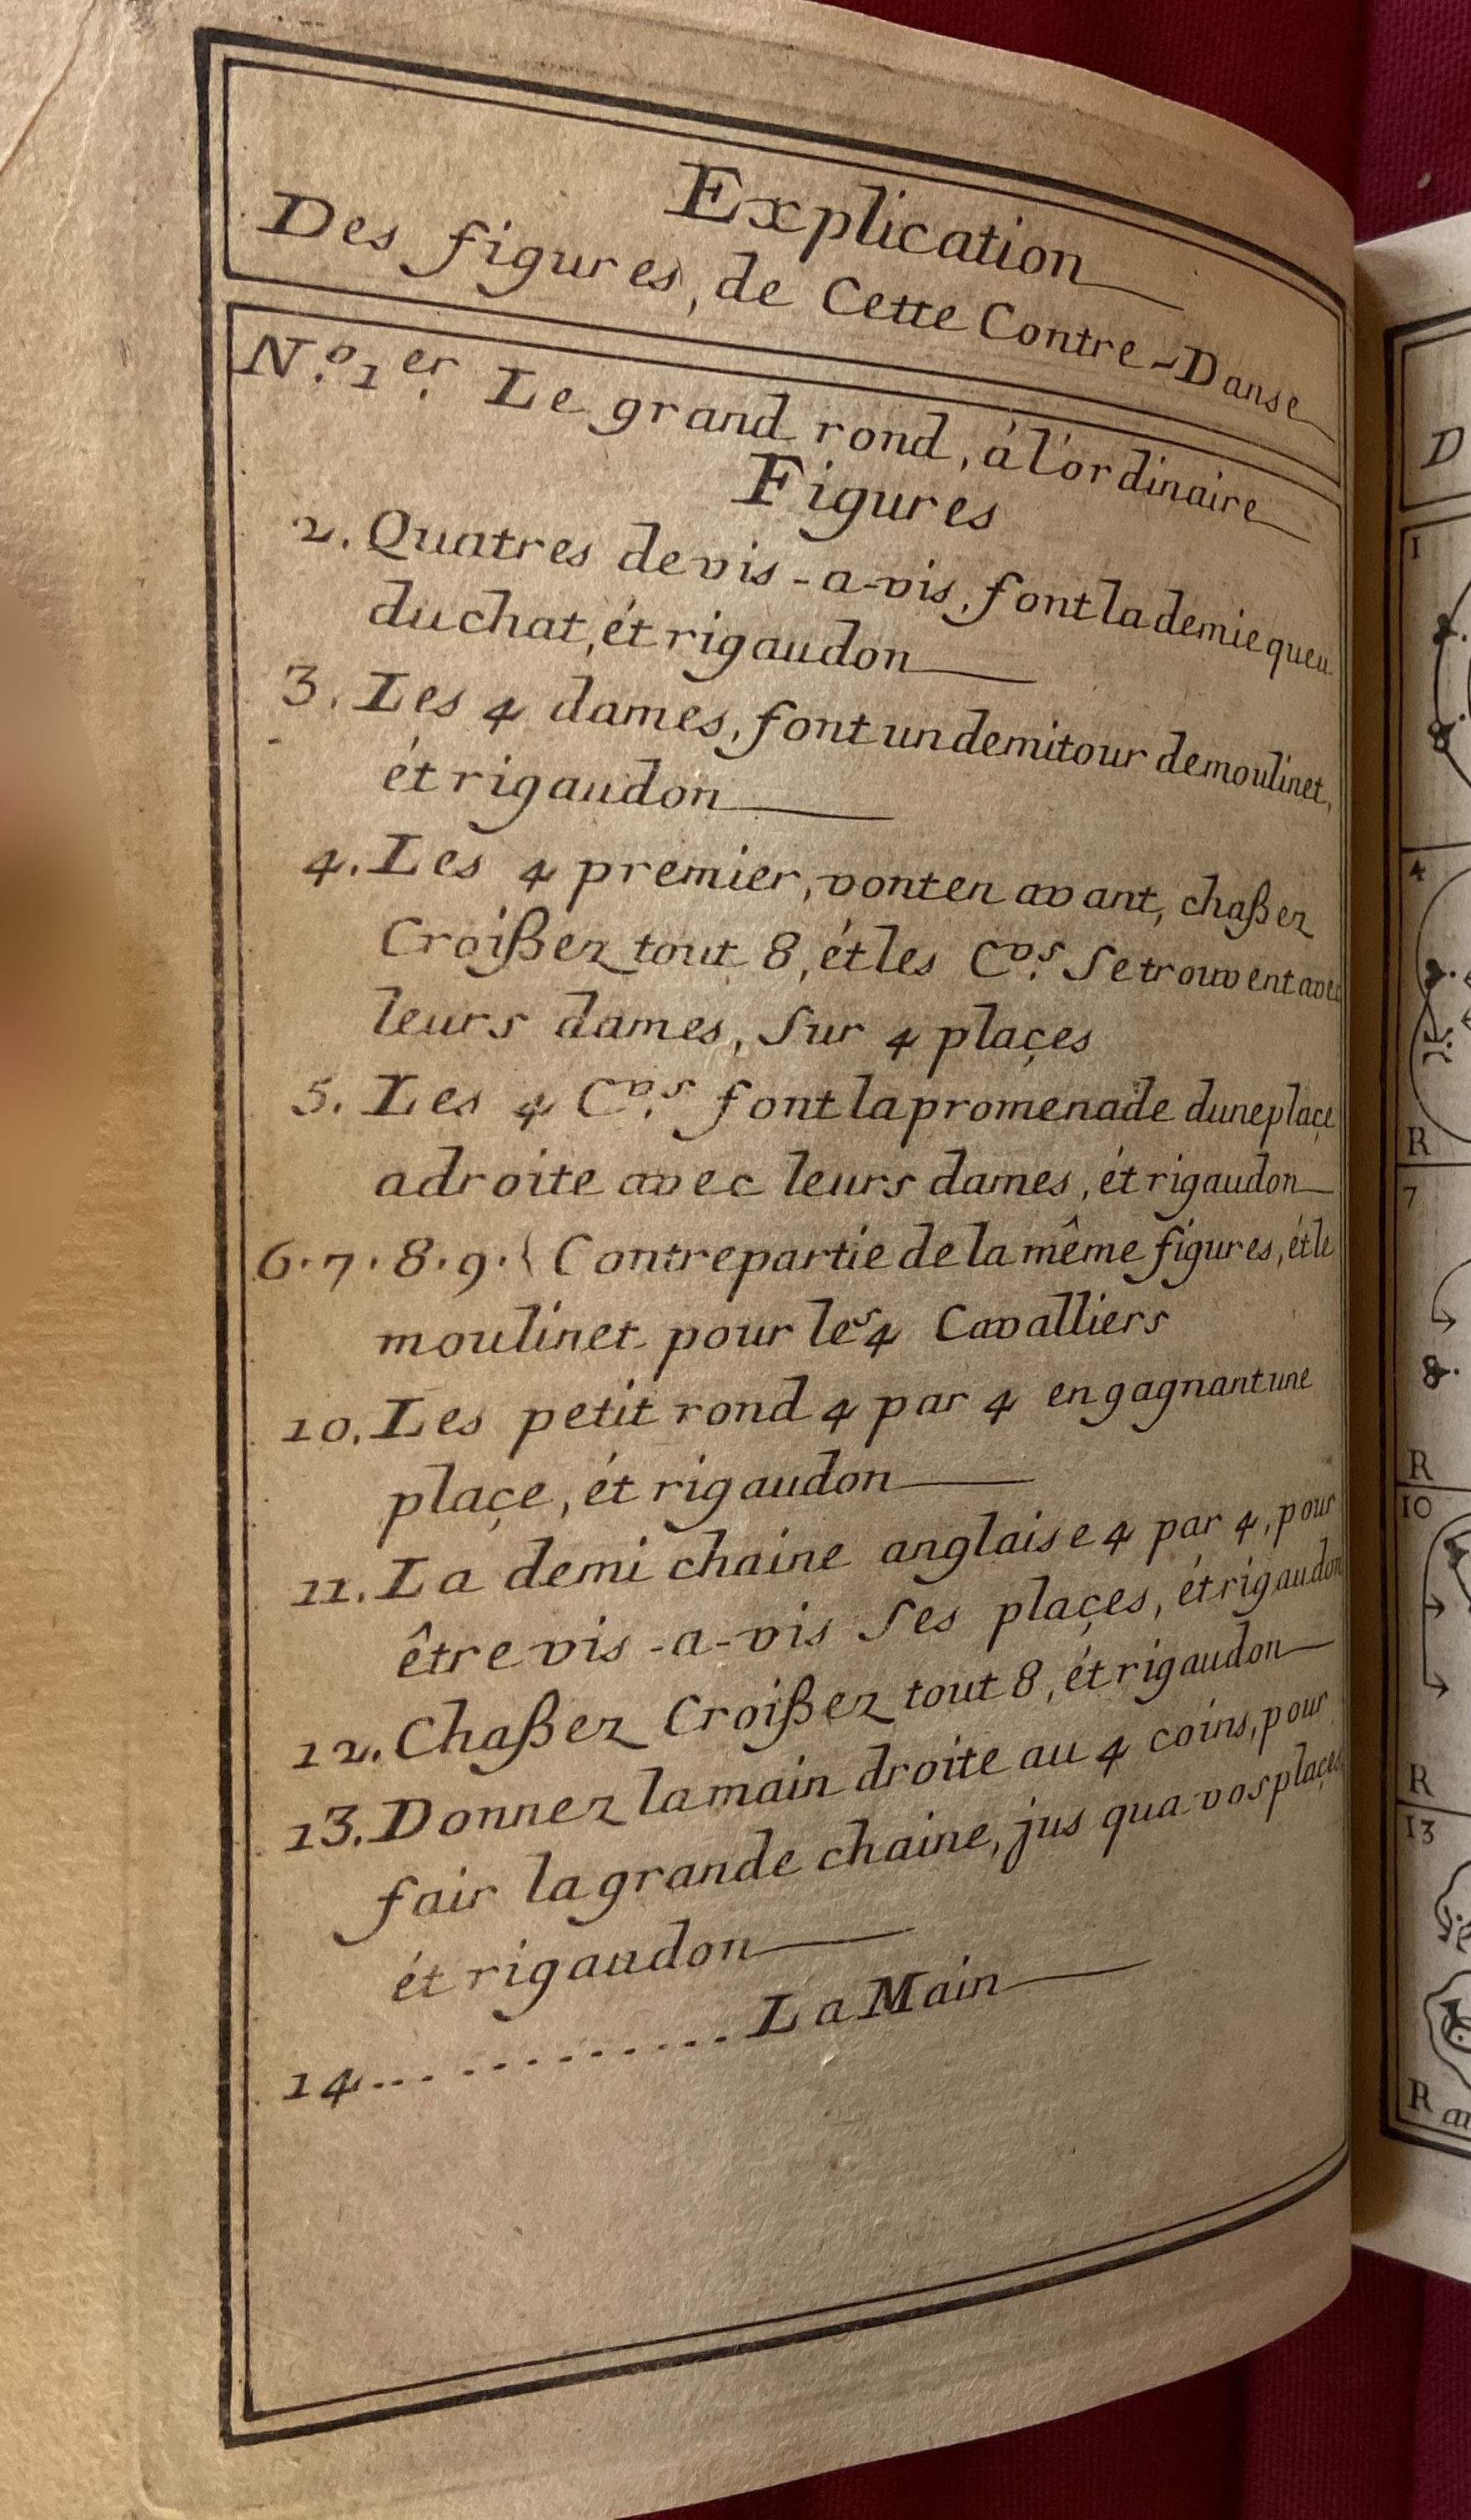 Explication
Des figures, de Cette Contre-Danse
N.º 1.er Le grand rond, á l'ordinaire
Figures
2. Quatres de vis-a-vis, font la demie queu
du chat, ét rigaudon
3. Les 4 dames, font un demi tour de moulinet,
ét rigaudon
4. Les 4 premier, vont en avant, chaßez
Croißez tout 8, ét les C.vs Se trouvent avec
leurs dames, Sur 4 plaçes
5. Les 4 C.vs font la promenade dune plaçe
a droite avec leurs dames, ét rigaudon
6.7.8.9.{ Contrepartie de la même figures, ét le
moulinet pour les 4 Cavalliers
10. Les petit rond 4 par 4 en gagnant une
plaçe, ét rigaudon
11. La demi chaine anglaise 4 par 4, pour
être vis-a-vis Ses plaçes, ét rigaudon
12. Chaßez Croißez tout 8, ét rigaudon
13. Donnez la main droite au 4 coins, pour
fair la grande chaine, jus qua vos plaçes
ét rigaudon
14............. La Main
D
1
4
R
7
R
10
R
13
R